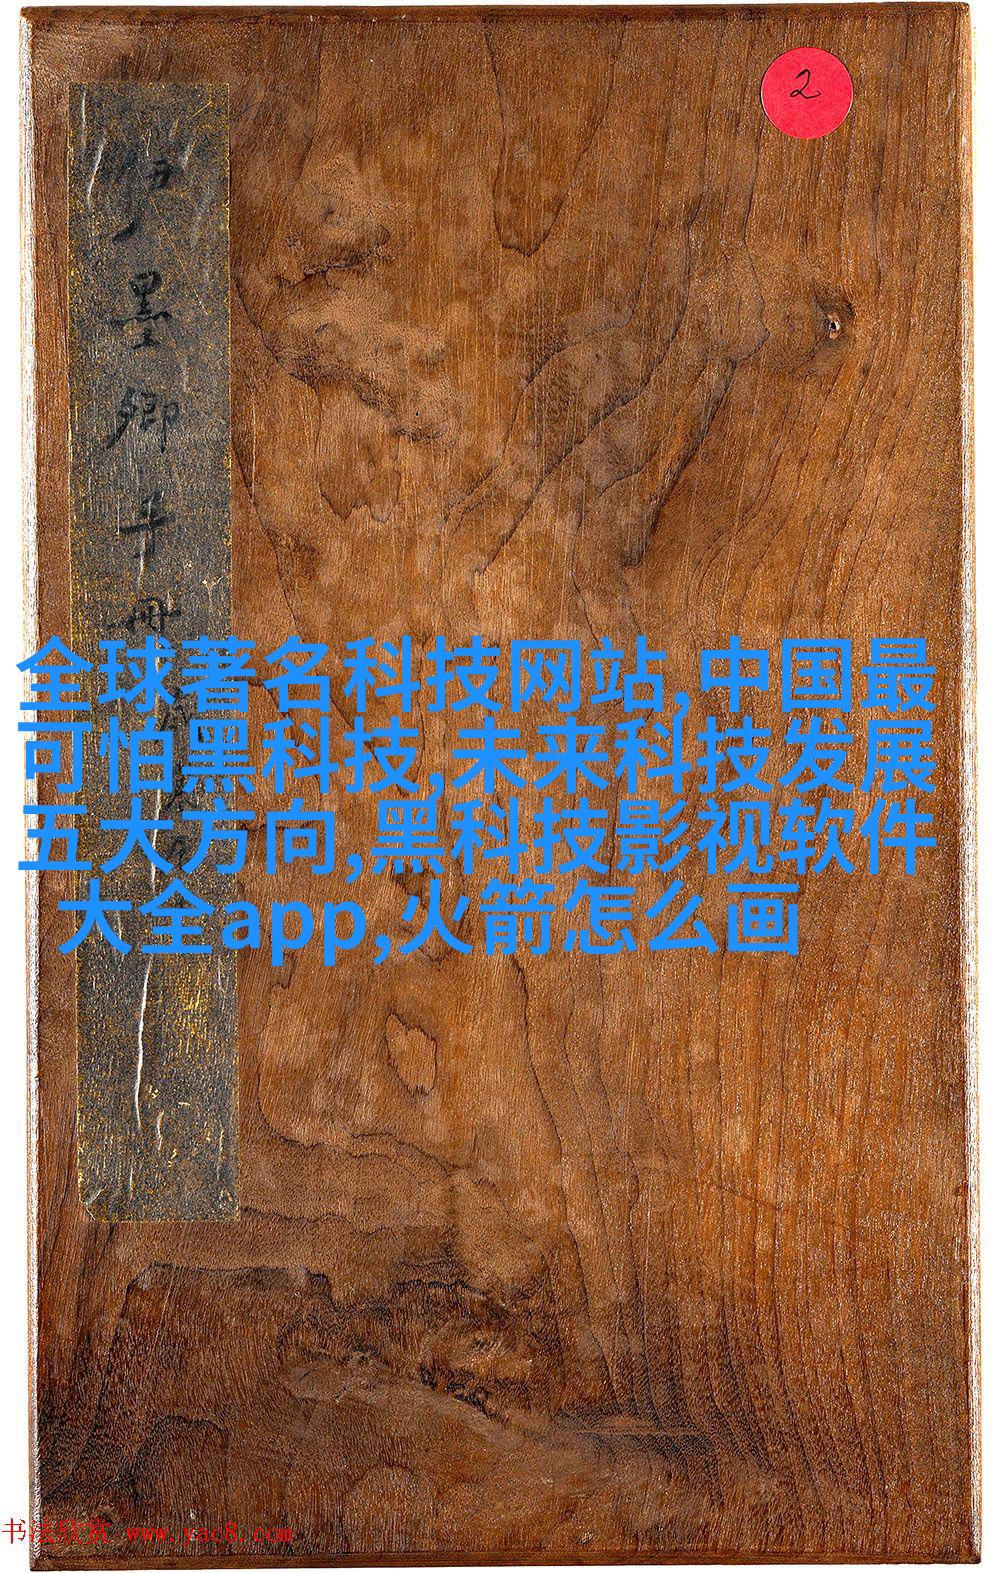 2
墨卿手册
全球著名科技网站,中国最
可怕黑科技,未来科技发展
五大方向,黑科技影视软件
大全app,火箭怎么画
书法欣赏 www.yac8.com